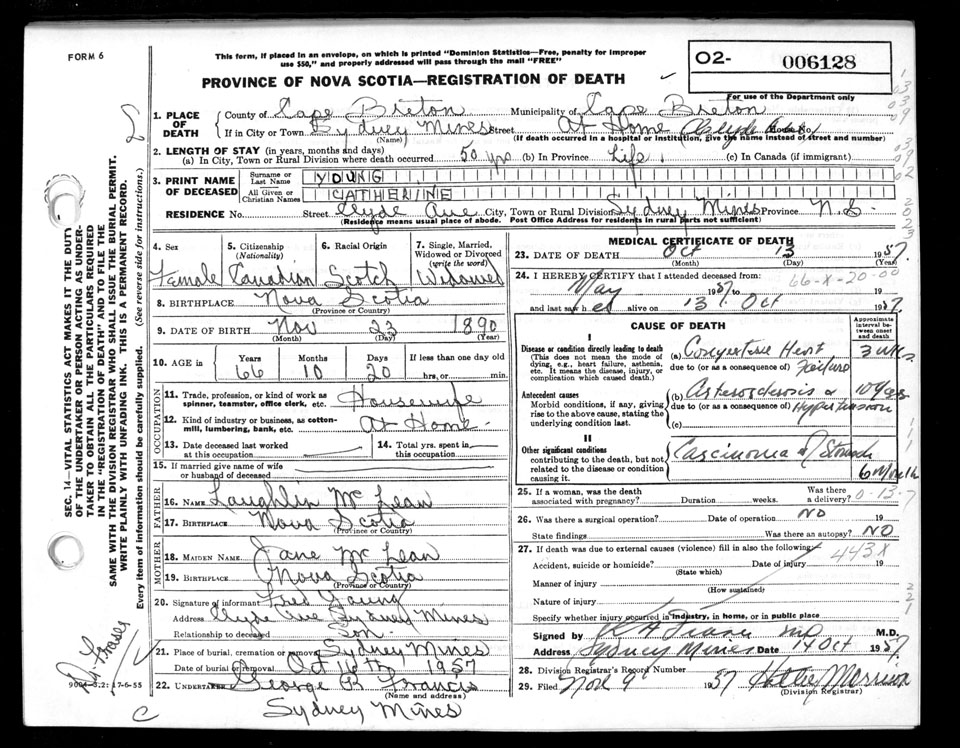 FORM 6
This form, if placed in an envelope, on which is printed "Dominion Statistics—Free, penalty for improper
use $50," and properly addressed will pass through the mail "FREE"
PROVINCE OF NOVA SCOTIA—REGISTRATION OF DEATH
O2- 006128
For use of the Department only
1. PLACE OF DEATH
County of Cape Breton Municipality of Cape Breton
If in City or Town Sydney Mines Street At Home (Clyde Ave) House No.
(Name) (If death occurred in a hospital or institution, give the name instead of street and number)
2. LENGTH OF STAY (in years, months and days)
(a) In City, Town or Rural Division where death occurred 50 yrs (b) In Province Life (c) In Canada (if immigrant)
3. PRINT NAME OF DECEASED
Surname or Last Name YOUNG
All Given or Christian Names CATHERINE
RESIDENCE No. Street Clyde Ave City, Town or Rural Division Sydney Mines Province N.S.
(Residence means usual place of abode. Post Office Address for residents in rural parts not sufficient)
4. Sex Female
5. Citizenship (Nationality) Canadian
6. Racial Origin Scotch
7. Single, Married, Widowed or Divorced (write the word) Widowed
8. BIRTHPLACE Nova Scotia
(Province or Country)
9. DATE OF BIRTH Nov 23 1890
(Month) (Day) (Year)
10. AGE in Years Months Days If less than one day old
66 10 20 hrs, or min.
OCCUPATION
11. Trade, profession, or kind of work as spinner, teamster, office clerk, etc. Housewife
12. Kind of industry or business, as cotton-mill, lumbering, bank, etc. At Home
13. Date deceased last worked at this occupation
14. Total yrs. spent in this occupation
15. If married give name of wife or husband of deceased
FATHER
16. NAME Laughlin McLean
17. BIRTHPLACE Nova Scotia
(Province or Country)
MOTHER
18. MAIDEN NAME Jane McLean
19. BIRTHPLACE Nova Scotia
(Province or Country)
20. Signature of informant Fred Young
Address Clyde Ave Sydney Mines
Relationship to deceased Son
21. Place of burial, cremation or removal Sydney Mines
Date of burial or removal Oct 16th 1957
22. UNDERTAKER George B Francis
(Name and address)
Sydney Mines
MEDICAL CERTIFICATE OF DEATH
23. DATE OF DEATH Oct 13 1957
(Month) (Day) (Year)
66-X-20-00
24. I HEREBY CERTIFY that I attended deceased from:
May 1957 to 19
and last saw her alive on 13 Oct 1957
CAUSE OF DEATH
Approximate interval between onset and death
I
Disease or condition directly leading to death
(This does not mean the mode of dying, e.g., heart failure, asthenia, etc. It means the disease, injury, or complication which caused death.)
(a) Congestive Heart Failure 3 wks
due to (or as a consequence of)
Antecedent causes
Morbid conditions, if any, giving rise to the above cause, stating the underlying condition last.
(b) Arterosclerosis & Hypertension 10 yrs
due to (or as a consequence of)
(c)
II
Other significant conditions
contributing to the death, but not related to the disease or condition causing it.
Carcinoma of Stomach
6 month
25. If a woman, was the death associated with pregnancy? Duration weeks. Was there a delivery?
0-13-7
26. Was there a surgical operation? NO Date of operation 19
State findings Was there an autopsy? NO
27. If death was due to external causes (violence) fill in also the following: 443X
Accident, suicide or homicide? Date of injury 19
(State which)
Manner of injury
(How sustained)
Nature of injury
Specify whether injury occurred in industry, in home, or in public place
Signed by M.D.
Address Sydney Mines Date 14 Oct 1957
28. Division Registrar's Record Number
29. Filed Nov 9 1957 Hattie Morrison
(Division Registrar)
SEC. 14—VITAL STATISTICS ACT MAKES IT THE DUTY
OF THE UNDERTAKER OR PERSON ACTING AS UNDER-
TAKER TO OBTAIN ALL THE PARTICULARS REQUIRED
IN THE "REGISTRATION OF DEATH" AND TO FILE THE
SAME WITH THE DIVISION REGISTRAR WHO SHALL ISSUE THE BURIAL PERMIT.
WRITE PLAINLY WITH UNFADING INK. THIS IS A PERMANENT RECORD.
Every item of information should be carefully supplied. (See reverse side for instructions.)
Dr. Fraser
C